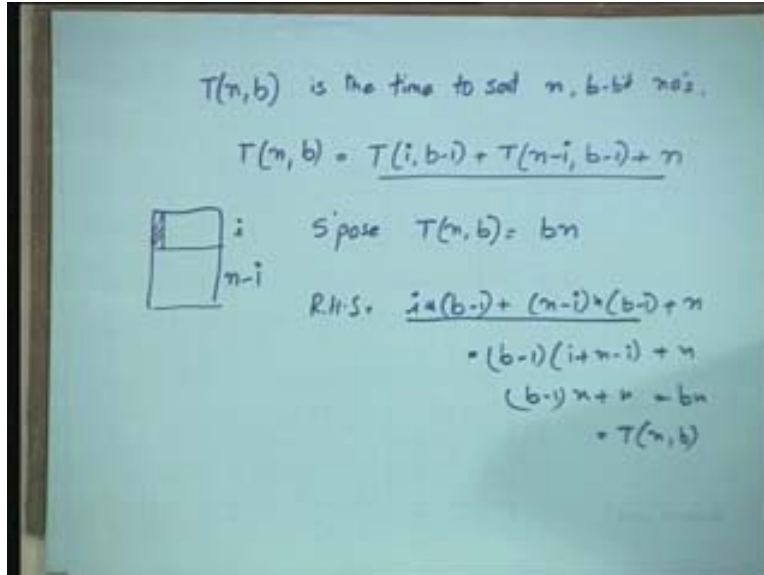 T(n,b) is the time to sort n, b-bit no's.
T(n,b) = T(i,b-1) + T(n-i, b-1) + n
i
n-i
S'pose T(n,b) = bn
R.H.S. i*(b-1) + (n-i)*(b-1) + n
= (b-1)(i+n-i) + n
(b-1)n + n = bn
= T(n,b)